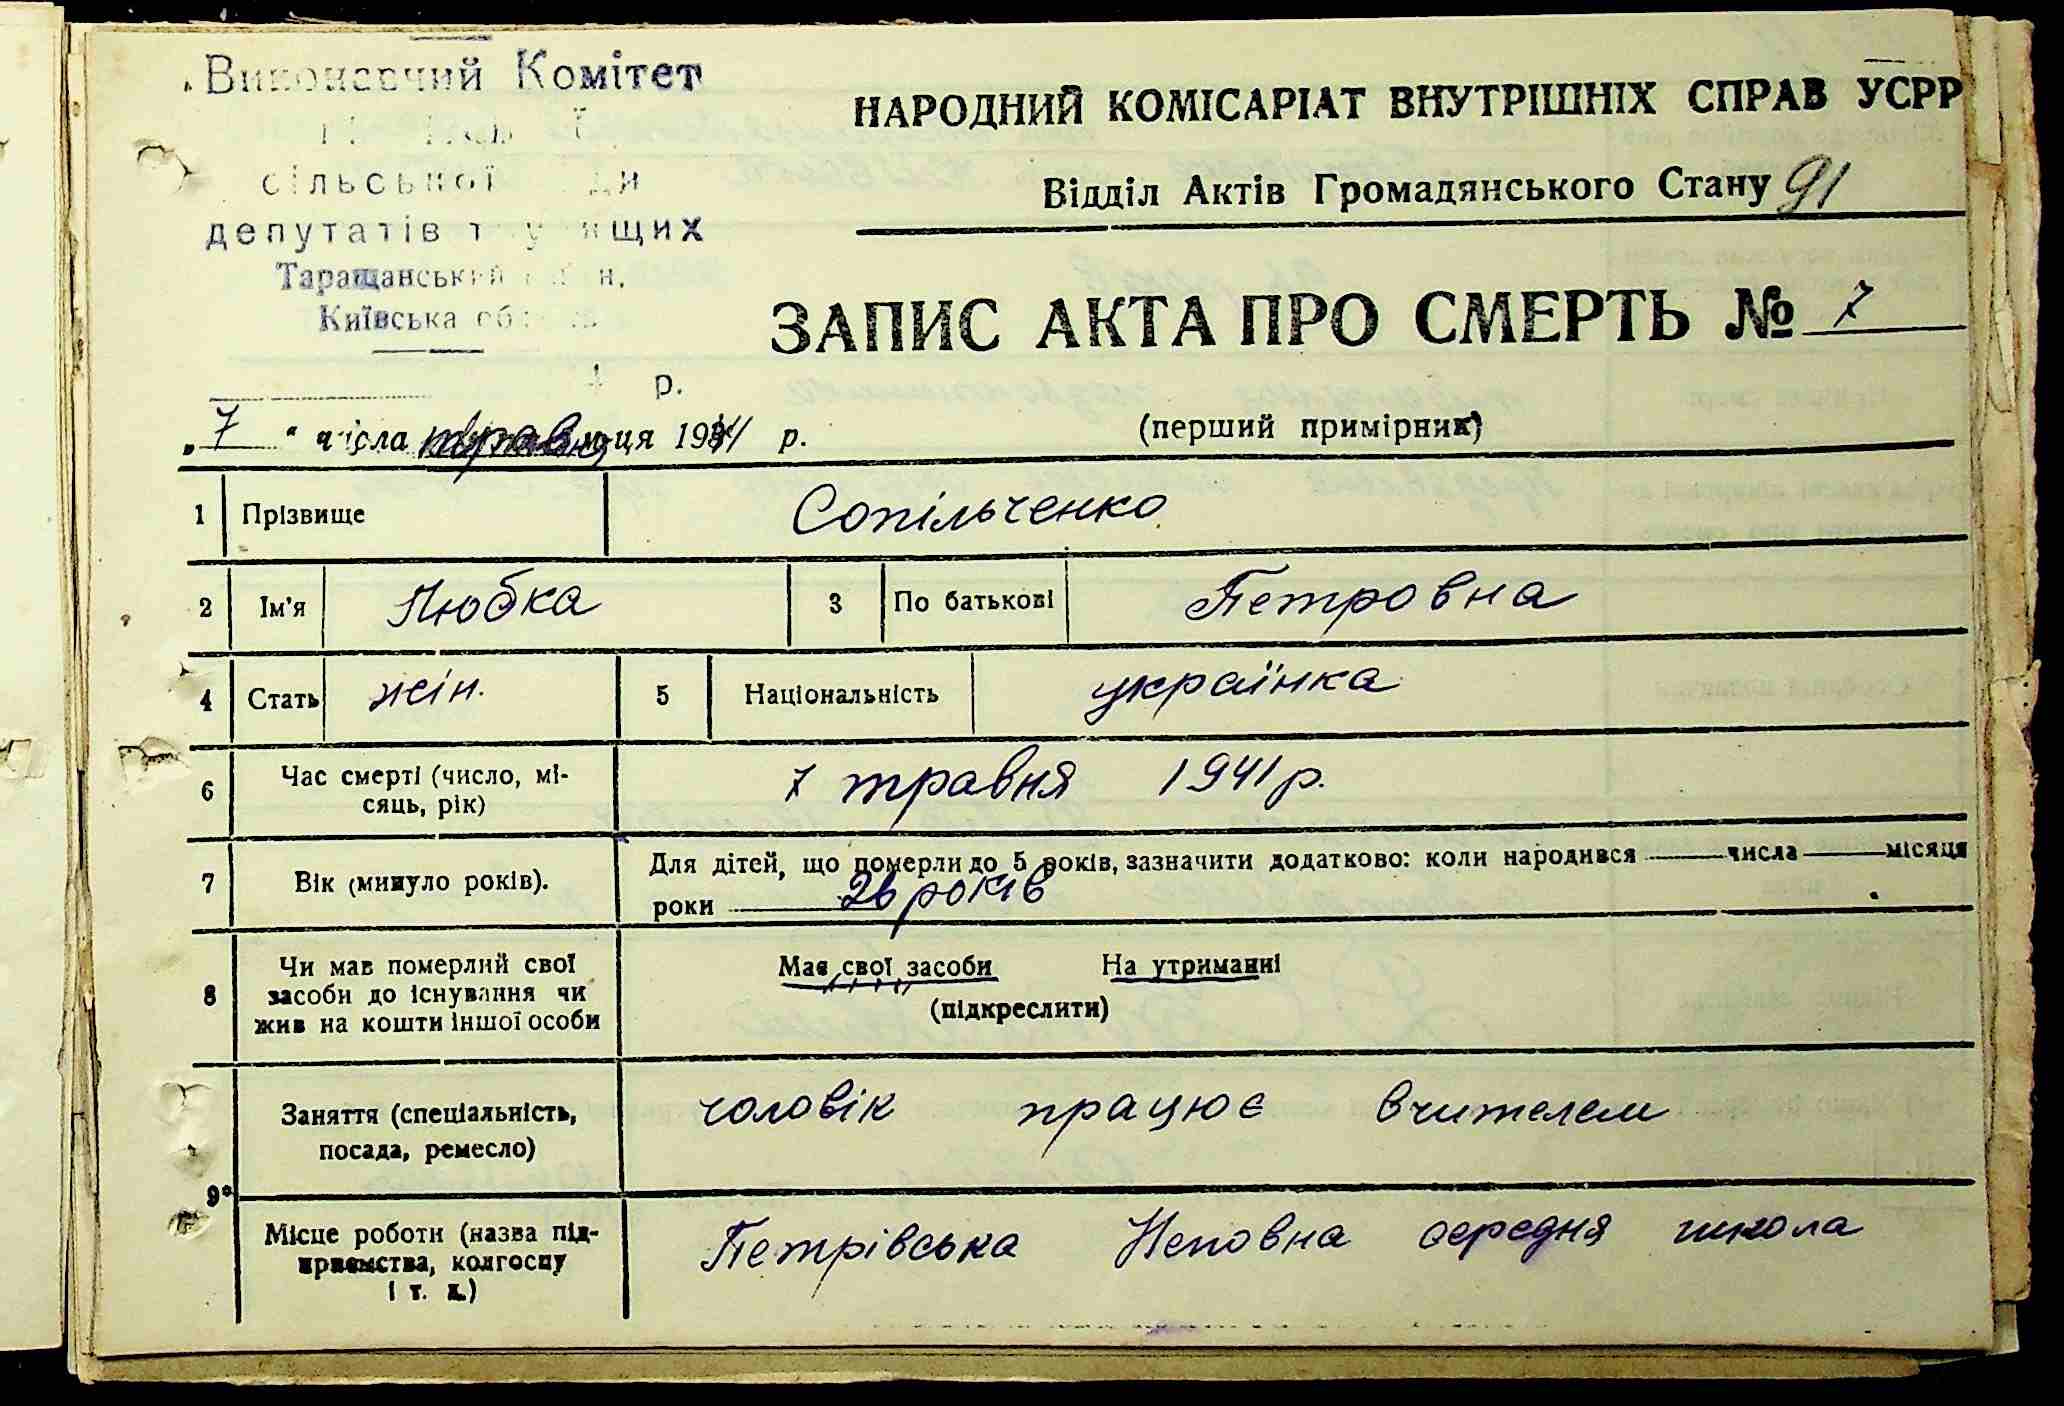 Виконавчий Комітет
сільської
депутатів
Таращанський
Київська
р.
НАРОДНИЙ КОМІСАРІАТ ВНУТРІШНІХ СПРАВ УСРР
Відділ Актів Громадянського Стану 91
ЗАПИС АКТА ПРО СМЕРТЬ № 7
„ 7 “ числа травня м-ця 1941 р. (перший примірник)
1 Прізвище Сопільченко
2 Ім'я Любка 3 По батькові Петровна
4 Стать жін. 5 Національність українка
6 Час смерті (число, мі-
сяць, рік) 7 травня 1941 р.
7 Вік (минуло років). Для дітей, що померли до 5 років, зазначити додатково: коли народився числа місяця
роки 26 років
8 Чи мав померлий свої
засоби до існування чи
жив на кошти іншої особи Має свої засоби На утриманні
(підкреслити)
9* Заняття (спеціальність,
посада, ремесло) чоловік працює вчителем
Місце роботи (назва під-
приємства, колгоспу
і т. д.) Петрівська Неповна середня школа